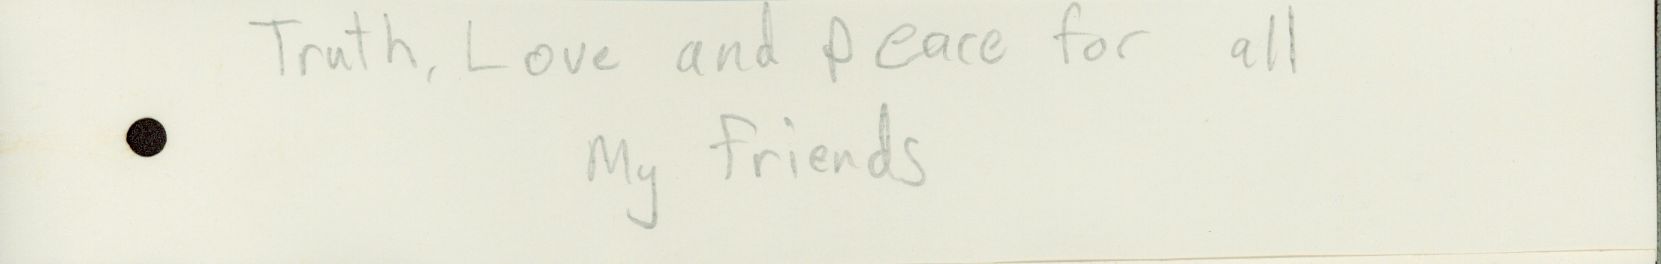 Truth, Love and Peace for all
My friends